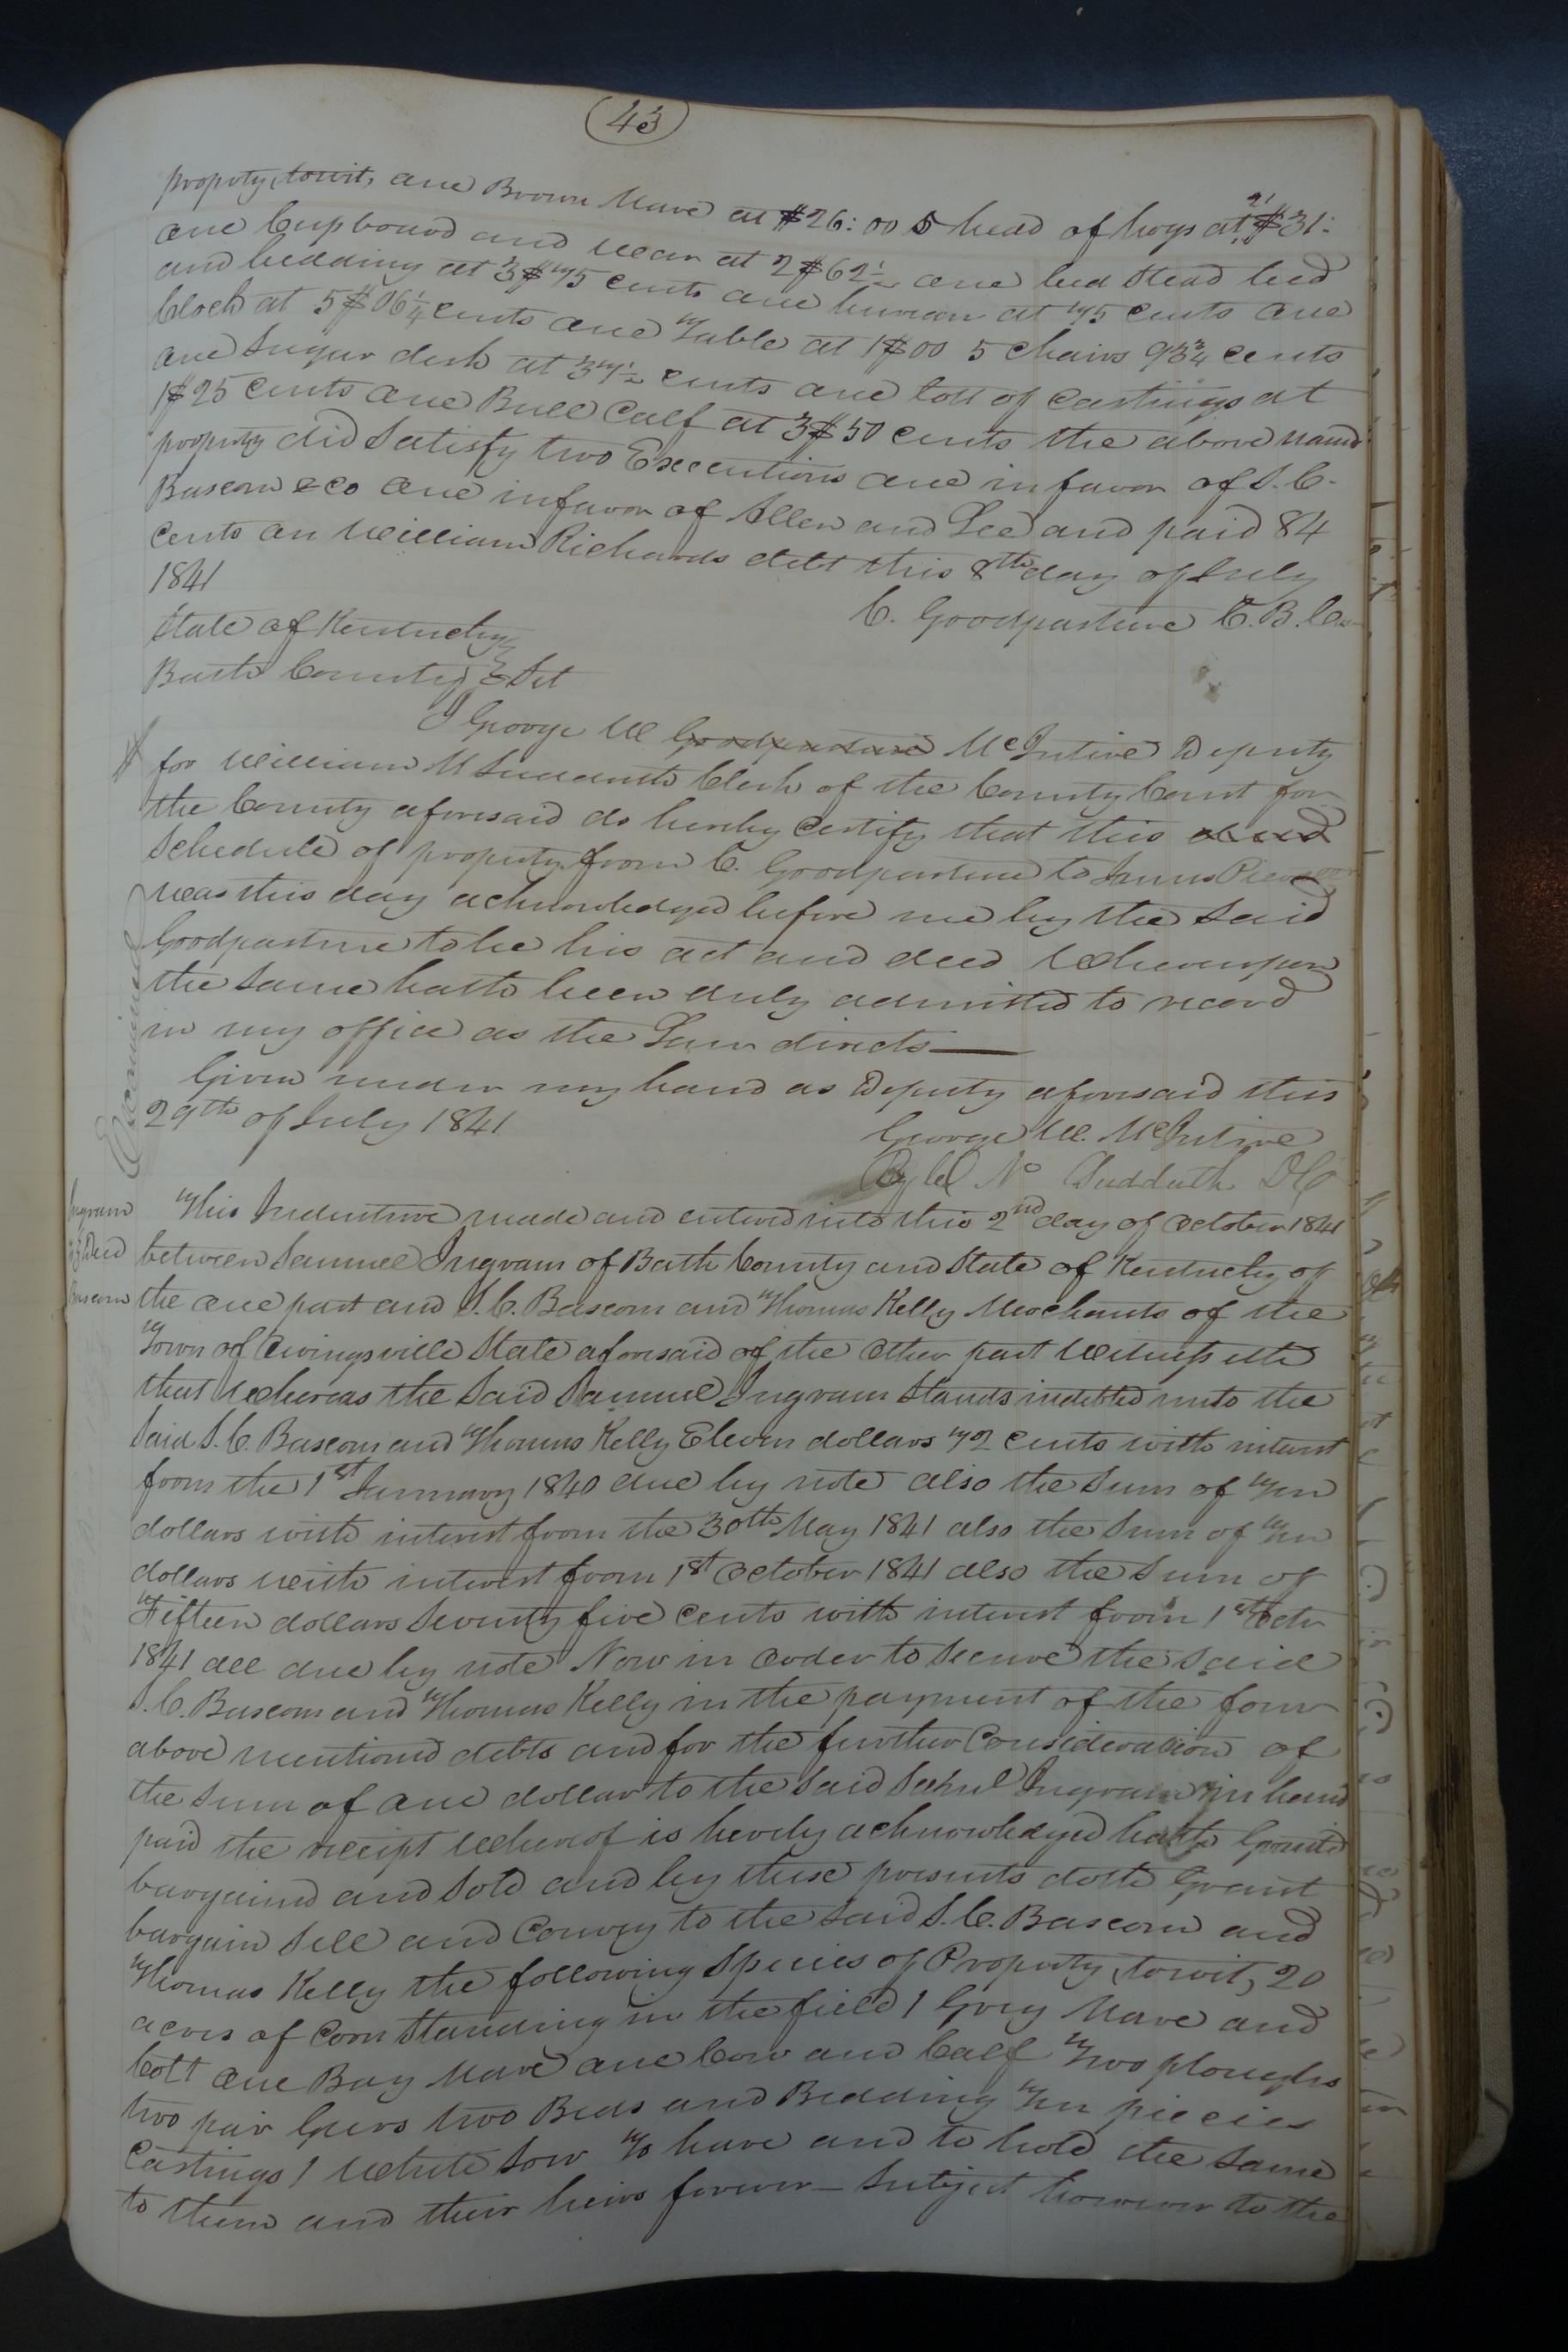 43
property, towit, one Brown Mare at $26:00 5 head of hogs at $31:
one Cupboard and ware at 2$62½ one bed stead bed
and bedding at 3$75 cents one bureau at 75 cents one
Clock at 5$06¼ cents one Table at 1$00 5 chairs 93¾ cents
one Sugar desk at 37½ cents one lott of Castings at
1$25 cents one Bull Calf at 3$50 cents the above named
property did Satisfy two Executions one in favor of S. C.
Bascom & co one in favor of Allen and Lee and paid 84
cents on William Richards debt this 8th day of July
1841
C. Goodpasture C.B.C.
State of Kentucky
Bath County Sct
I George W Goodpasture McIntire Deputy
for William M Sudduth Clerk of the County Court for
the County aforesaid do hereby Certify that this deed
Schedule of property from C. Goodpasture to
was this day acknowledged before me by the Said
Goodpasture to be his act and deed Whereupon
the Same hath been duly admitted to record
in my office as the Law directs
Given under my hand as Deputy aforesaid this
29th of July 1841
George W. McIntire
Sudduth DC
Examined
Ingram
Deed
Bascom
This Indenture made and entered into this 2nd day of October 1841
between Samuel Ingram of Bath County and State of Kentucky of
the one part and S. C. Bascom and Thomas Kelly Merchants of the
Town of Owingsville State aforesaid of the Other part Witnesseth
that Whereas the Said Samuel Ingram Stands indebted unto the
Said S. C. Bascom and Thomas Kelly Eleven dollars 72 cents with interest
from the 1st January 1840 due by note also the Sum of Ten
dollars with interest from the 30th May 1841 also the Sum of Ten
dollars with interest from 1st October 1841 also the Sum of
Fifteen dollars Seventy five cents with interest from 1st Octr
1841 all due by note Now in order to Secure the Said
S. C. Bascom and Thomas Kelly in the payment of the four
above mentioned debts and for the further Consideration of
the Sum of one dollar to the Said Saml Ingram in hand
paid the receipt Whereof is hereby acknowledged hath Granted
bargained and Sold and by these presents doth Grant
bargain Sell and Convey to the Said S. C. Bascom and
Thomas Kelly the following Species of Property, towit, 20
acres of Corn Standing in the field 1 Grey Mare and
Colt One Bay Mare one Cow and Calf Two ploughs
two pair Gears two Beds and Bedding Ten pieces
Castings 1 White Sow To have and to hold the Same
to them and their heirs forever - Subject however to the